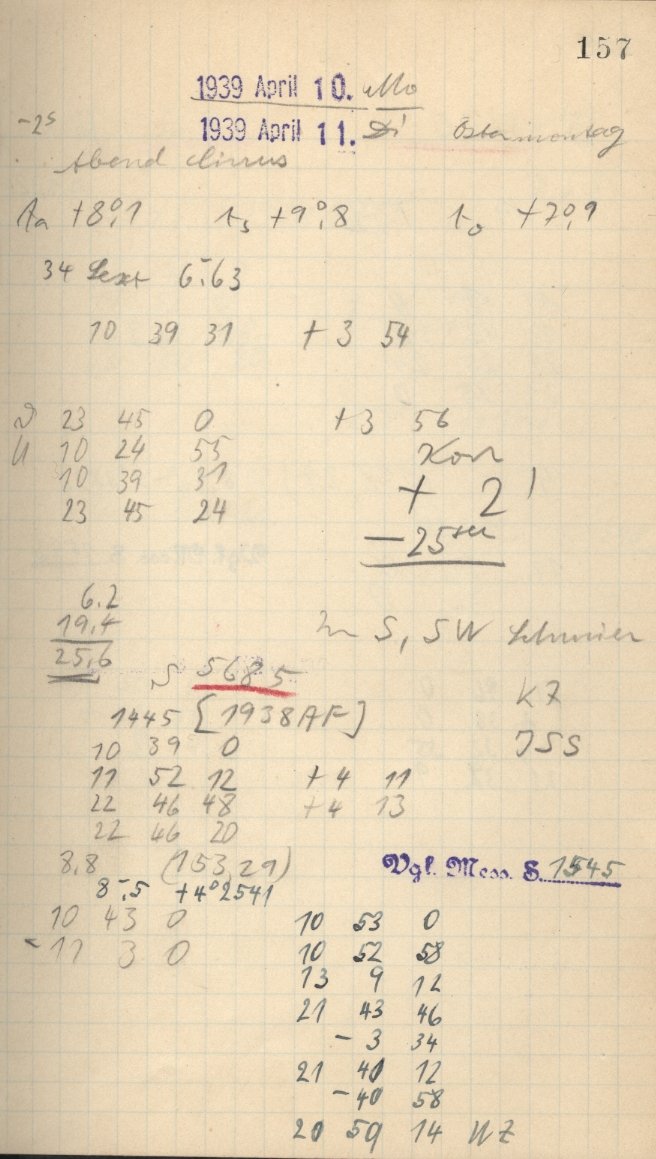 157
1939 April 10. Mo
-2s
1939 April 11. Di Ostermontag
Abend Cirrus
ta +8°,1 ts +9°,8 to +7°,9
34 Sext 6,63
10 39 31 + 3 54
23 45 0 +3 56
U 10 24 55 Korr
10 39 31 + 2'
23 45 24
-25
6.2
19,4 In S, SW
25,6
S 5685
K7
1445 [1938AF]
10 39 0 JSS
11 52 12 +4 11
22 46 48 +4 13
22 46 20
8,8 (153,29) Vgl. Mess. S. 1545
8,5 +4°2541
10 43 0 10 53 0
- 11 3 0 10 52 58
13 9 12
21 43 46
- 3 34
21 40 12
-40 58
20 59 14 WZ